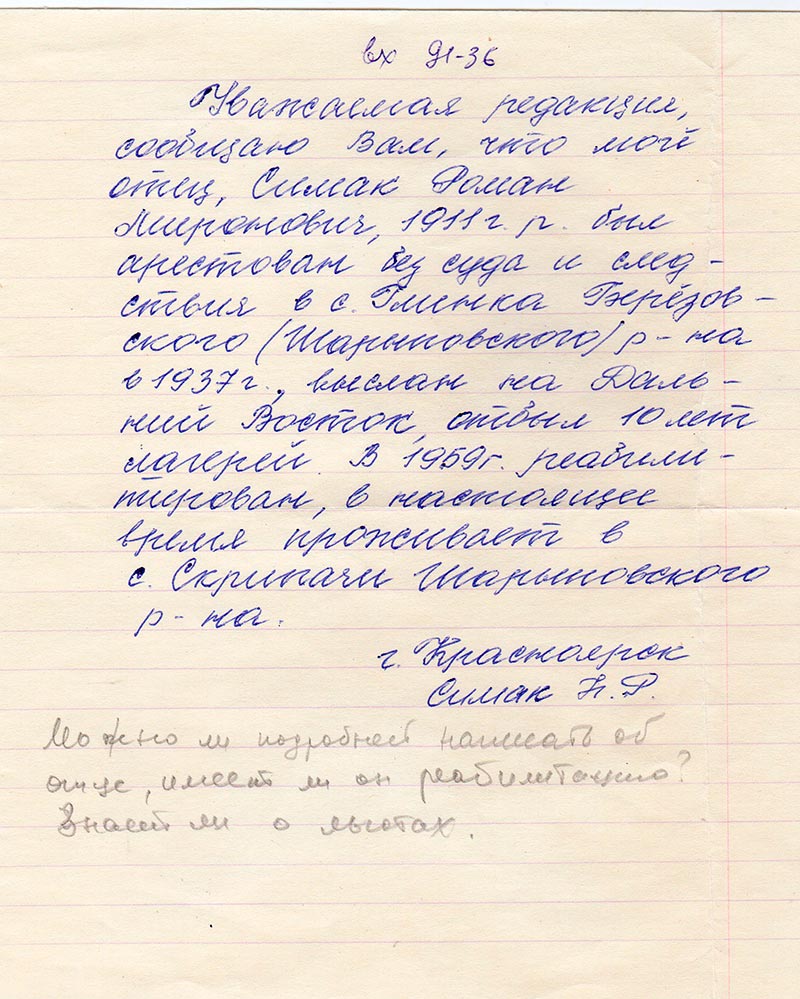 вх 91-36
Уважаемая редакция,
сообщаю Вам, что мой
отец, Симак Роман
Миронович, 1911 г. р. был
арестован без суда и след-
ствия в с. Глинка Берёзов-
ского (Шарыповского) р-на
в 1937 г., выслан на Даль-
ний Восток, отбыл 10 лет
лагерей. В 1959 г. реабили-
тирован, в настоящее
время проживает в
с. Скрипачи Шарыповского
р-на.
г. Красноярск
Симак Н. Р.
Можно ли подробней написать об
отце, имеет ли он реабилитацию?
Знает ли о льготах.